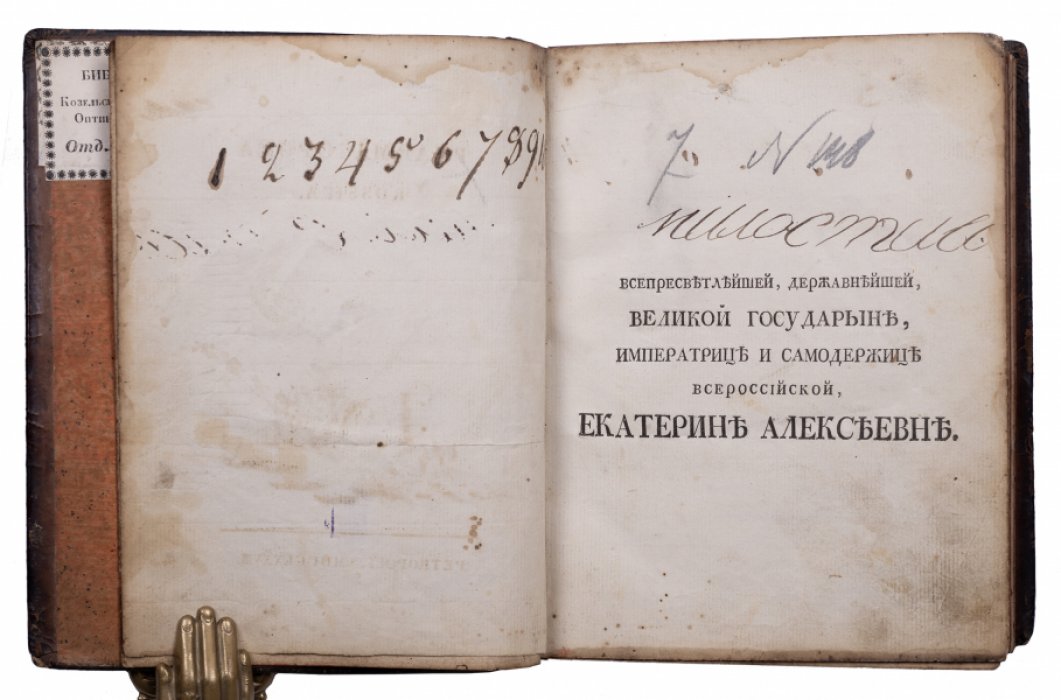 БИБ
Козельск
Оптин
Отд.
1 2 3 4 5 6 7 8 9
7 N
милостивъ
ВСЕПРЕСВѢТЛѢЙШЕЙ, ДЕРЖАВНѢЙШЕЙ,
ВЕЛИКОЙ ГОСУДАРЫНѢ,
ИМПЕРАТРИЦѢ И САМОДЕРЖИЦѢ
ВСЕРОССІЙСКОЙ,
ЕКАТЕРИНѢ АЛЕКСѢЕВНѢ.